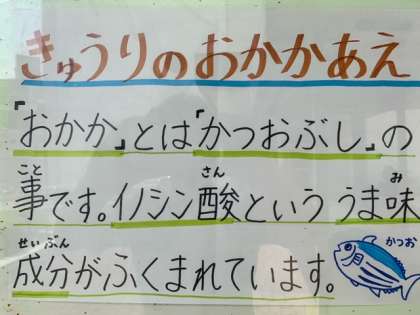 きゅうりのおかかあえ
「おかか」とは「かつおぶし」の
事です。イノシン酸といううま味
成分がふくまれています。
こと
さん
み
せいぶん
かつお